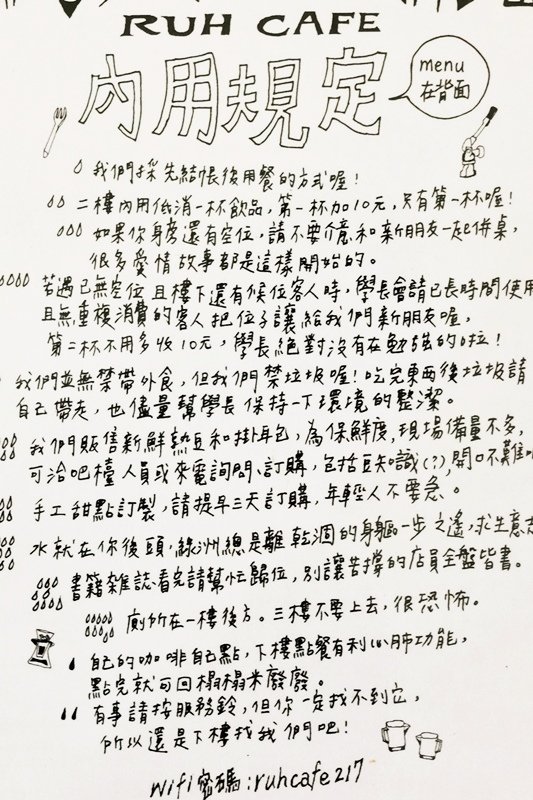 RUH CAFE
內用規定
menu
在背面
我們採先結帳後用餐的方式喔!
二樓內用低消一杯飲品,第一杯加10元,只有第一杯喔!
如果你身旁還有空位,請不要介意和新朋友一起併桌,
很多愛情故事都是這樣開始的。
若遇已無空位且樓下還有候位客人時,學長會請已長時間使用
且無重複消費的客人把位子讓給我們新朋友喔,
第二杯不用多收10元,學長絕對沒有在勉強的啦!
我們並無禁帶外食,但我們禁垃圾喔!吃完東西後垃圾請
自己帶走,也儘量幫學長保持一下環境的整潔。
我們販售新鮮熟豆和掛耳包,為保鮮度,現場備量不多,
可洽吧檯人員或來電詢問、訂購,包括豆知識(?),開口不難
手工甜點訂製,請提早三天訂購,年輕人不要急。
水就在你後頭,綠洲總是離乾涸的身軀一步之遙,求生意志
書籍雜誌看完請幫忙歸位,別讓苦撐的店員全盤皆書。
廁所在一樓後方。三樓不要上去,很恐怖。
自己的咖啡自己點,下樓點餐有利心肺功能,
點完就可回榻榻米廢廢。
有事請按服務鈴,但你一定找不到它,
所以還是下樓找我們吧!
Wifi密碼:ruhcafe217